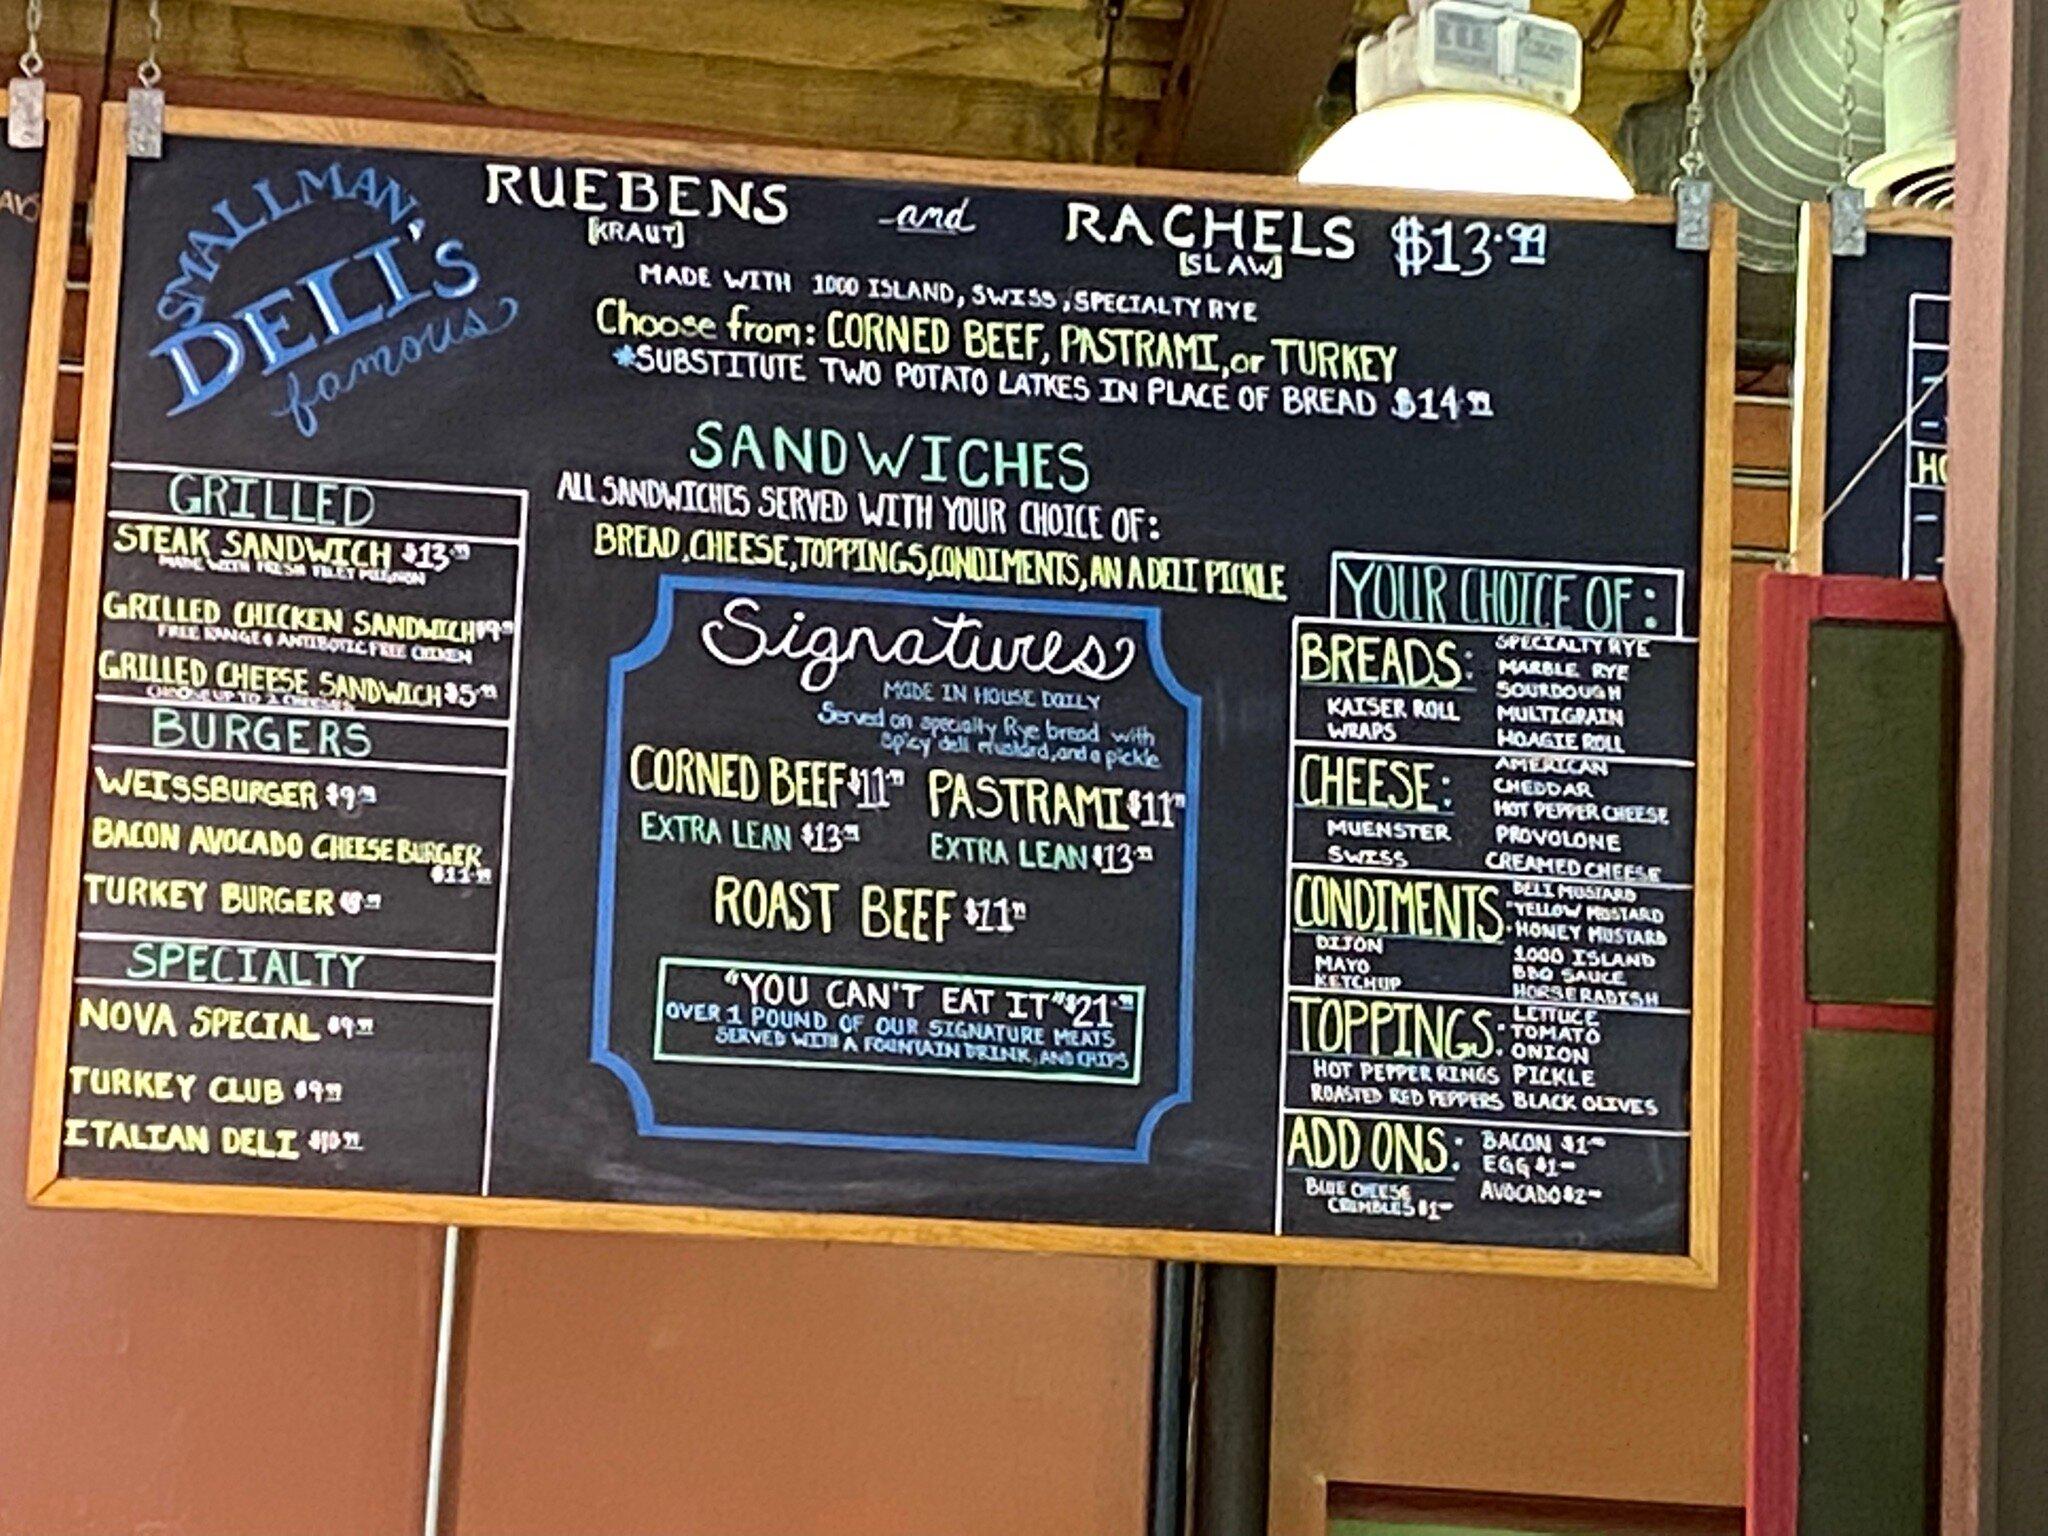 SMALLMAN'S
DELI'S
famous
RUEBENS and RACHELS $13.99
[KRAUT] [SLAW]
MADE WITH 1000 ISLAND, SWISS, SPECIALTY RYE
Choose from: CORNED BEEF, PASTRAMI, or TURKEY
*SUBSTITUTE TWO POTATO LATKES IN PLACE OF BREAD $14.99
SANDWICHES
ALL SANDWICHES SERVED WITH YOUR CHOICE OF:
BREAD, CHEESE, TOPPINGS, CONDIMENTS, AN A DELI PICKLE
GRILLED
STEAK SANDWICH $13.99
MADE WITH FRESH FILET MIGNON
GRILLED CHICKEN SANDWICH $9.99
FREE RANGE & ANTIBIOTIC FREE CHICKEN
GRILLED CHEESE SANDWICH $5.99
CHOOSE UP TO 2 CHEESES
BURGERS
WEISSBURGER $9.99
BACON AVOCADO CHEESE BURGER
$11.99
TURKEY BURGER
SPECIALTY
NOVA SPECIAL $9.99
TURKEY CLUB $9.99
ITALIAN DELI $10.99
Signatures
MADE IN HOUSE DAILY
Served on specialty Rye bread with
spicy deli mustard, and a pickle
CORNED BEEF $11.99 PASTRAMI $11.99
EXTRA LEAN $13.99 EXTRA LEAN $13.99
ROAST BEEF $11.99
"YOU CAN'T EAT IT" $21.99
OVER 1 POUND OF OUR SIGNATURE MEATS
SERVED WITH A FOUNTAIN DRINK, AND CHIPS
YOUR CHOICE OF:
BREADS: SPECIALTY RYE
MARBLE RYE
SOURDOUGH
KAISER ROLL MULTIGRAIN
WRAPS HOAGIE ROLL
CHEESE: AMERICAN
CHEDDAR
HOT PEPPER CHEESE
MUENSTER PROVOLONE
SWISS CREAMED CHEESE
CONDIMENTS: DELI MUSTARD
YELLOW MUSTARD
HONEY MUSTARD
DIJON 1000 ISLAND
MAYO BBQ SAUCE
KETCHUP HORSERADISH
TOPPINGS: LETTUCE
TOMATO
ONION
HOT PEPPER RINGS PICKLE
ROASTED RED PEPPERS BLACK OLIVES
ADD ONS: BACON $1.00
EGG $1.00
BLUE CHEESE AVOCADO $2.00
CRUMBLES $1.00